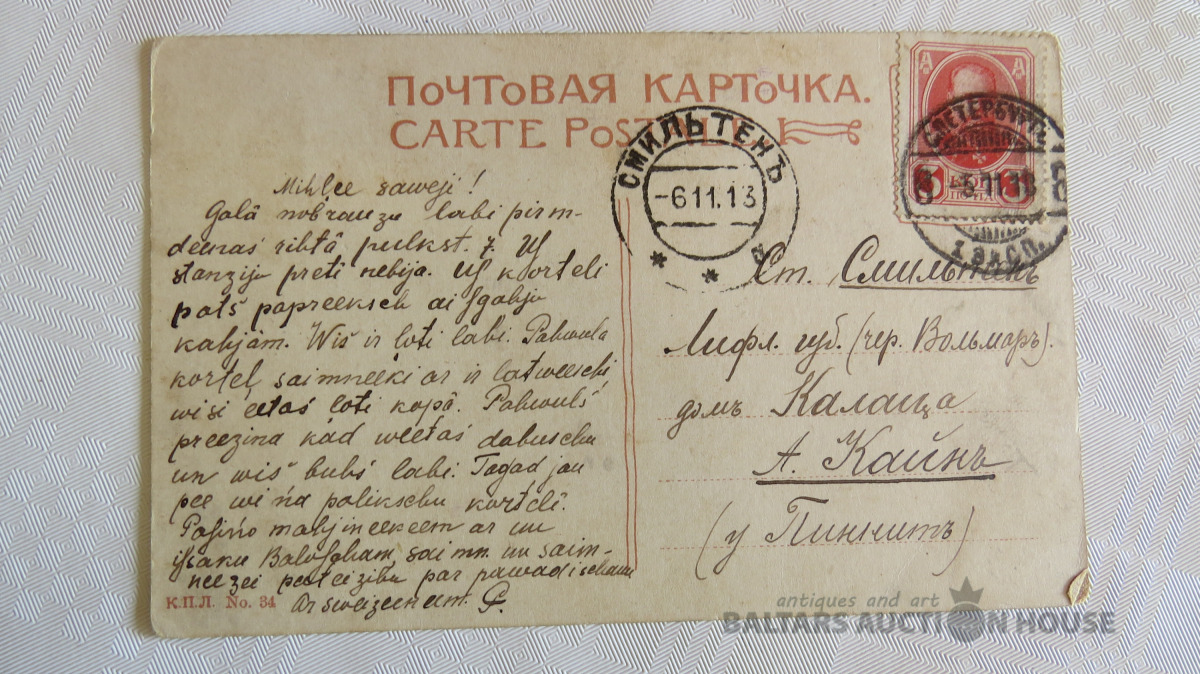 ПОЧТОВАЯ КАРТОЧКА.
CARTE POSTALE
СМИЛЬТЕНЪ
-6 11. 13
С.ПЕТЕРБУРГЪ
1 ЭКСП.
Mihlee saweji!
Galā nobrauzu labi pirm-
deenas rihtā pulkst. 7. Uf
stanziju preti nebija. Uf korteli
pats papreeksch aifgahju
kahjām. Wiš ir loti labi. Pahwula
korteļ saimneeki ar ir latweeschi,
wisi eetas loti kopā. Pahwuls
preezina kad weetas dabuschu
un wiš buhs labi. Tagad jau
pee wiņa palikschu kortelī.
Pafiņo mahjineekeem ar un
ihsaku saimn. un saim-
neezei pateizibu par pawadischanu
Ar sweizeenum.
К.П.Л. No. 34
Ст. Смильтенъ
Лифл. губ. (чер. Вольмаръ).
домъ Калаца
А. Кайнъ
(у Пиннитъ)
antiques and art
BALTARS AUCTION HOUSE